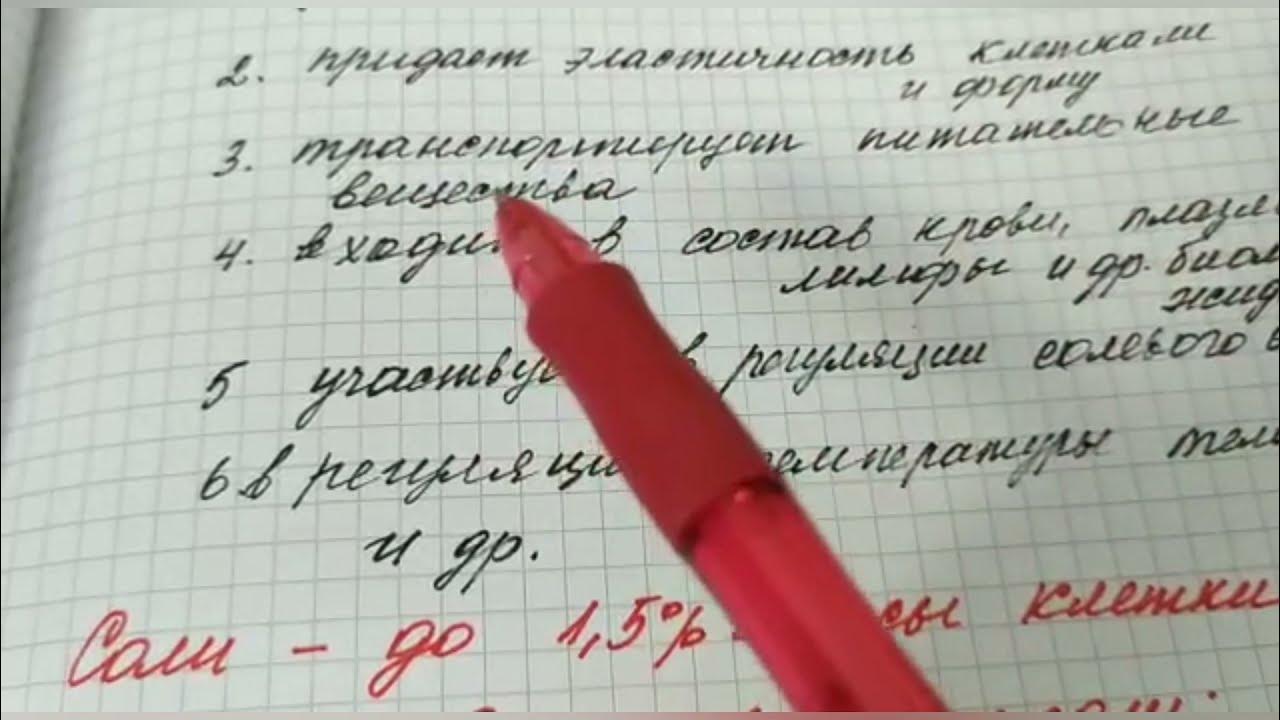 2. придает эластичность клеткам
и форму
3. транспортирует питательные
вещества
4. входит в состав крови,
лимфы и др.
5 участвует в регуляции солевого
6 в регуляции температуры
и др.
Соли - до 1,5% клетки